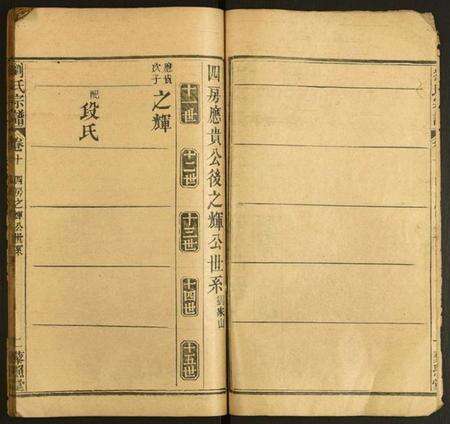 四房應貴公後之輝公世系
十一世
十二世
十三世
十四世
十五世
應貴
次子
之輝
配
段氏
劉氏宗譜
卷十
四房之輝公世系